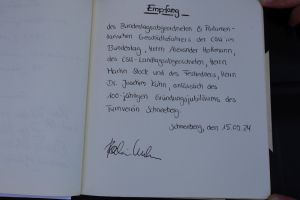 Empfang
des Bundestagsabgeordneten & Parlamen-
tarischen Geschäftsführers der CSU im
Bundestag, Herrn Alexander Hoffmann,
des CSU-Landtagsabgeordneten, Herrn
Martin Stock und des Festredners, Herrn
Dr. Joachim Kühn, anlässlich des
100-jährigen Gründungsjubiläums des
Turnverein Schneeberg.
Schneeberg, den 15.09.24